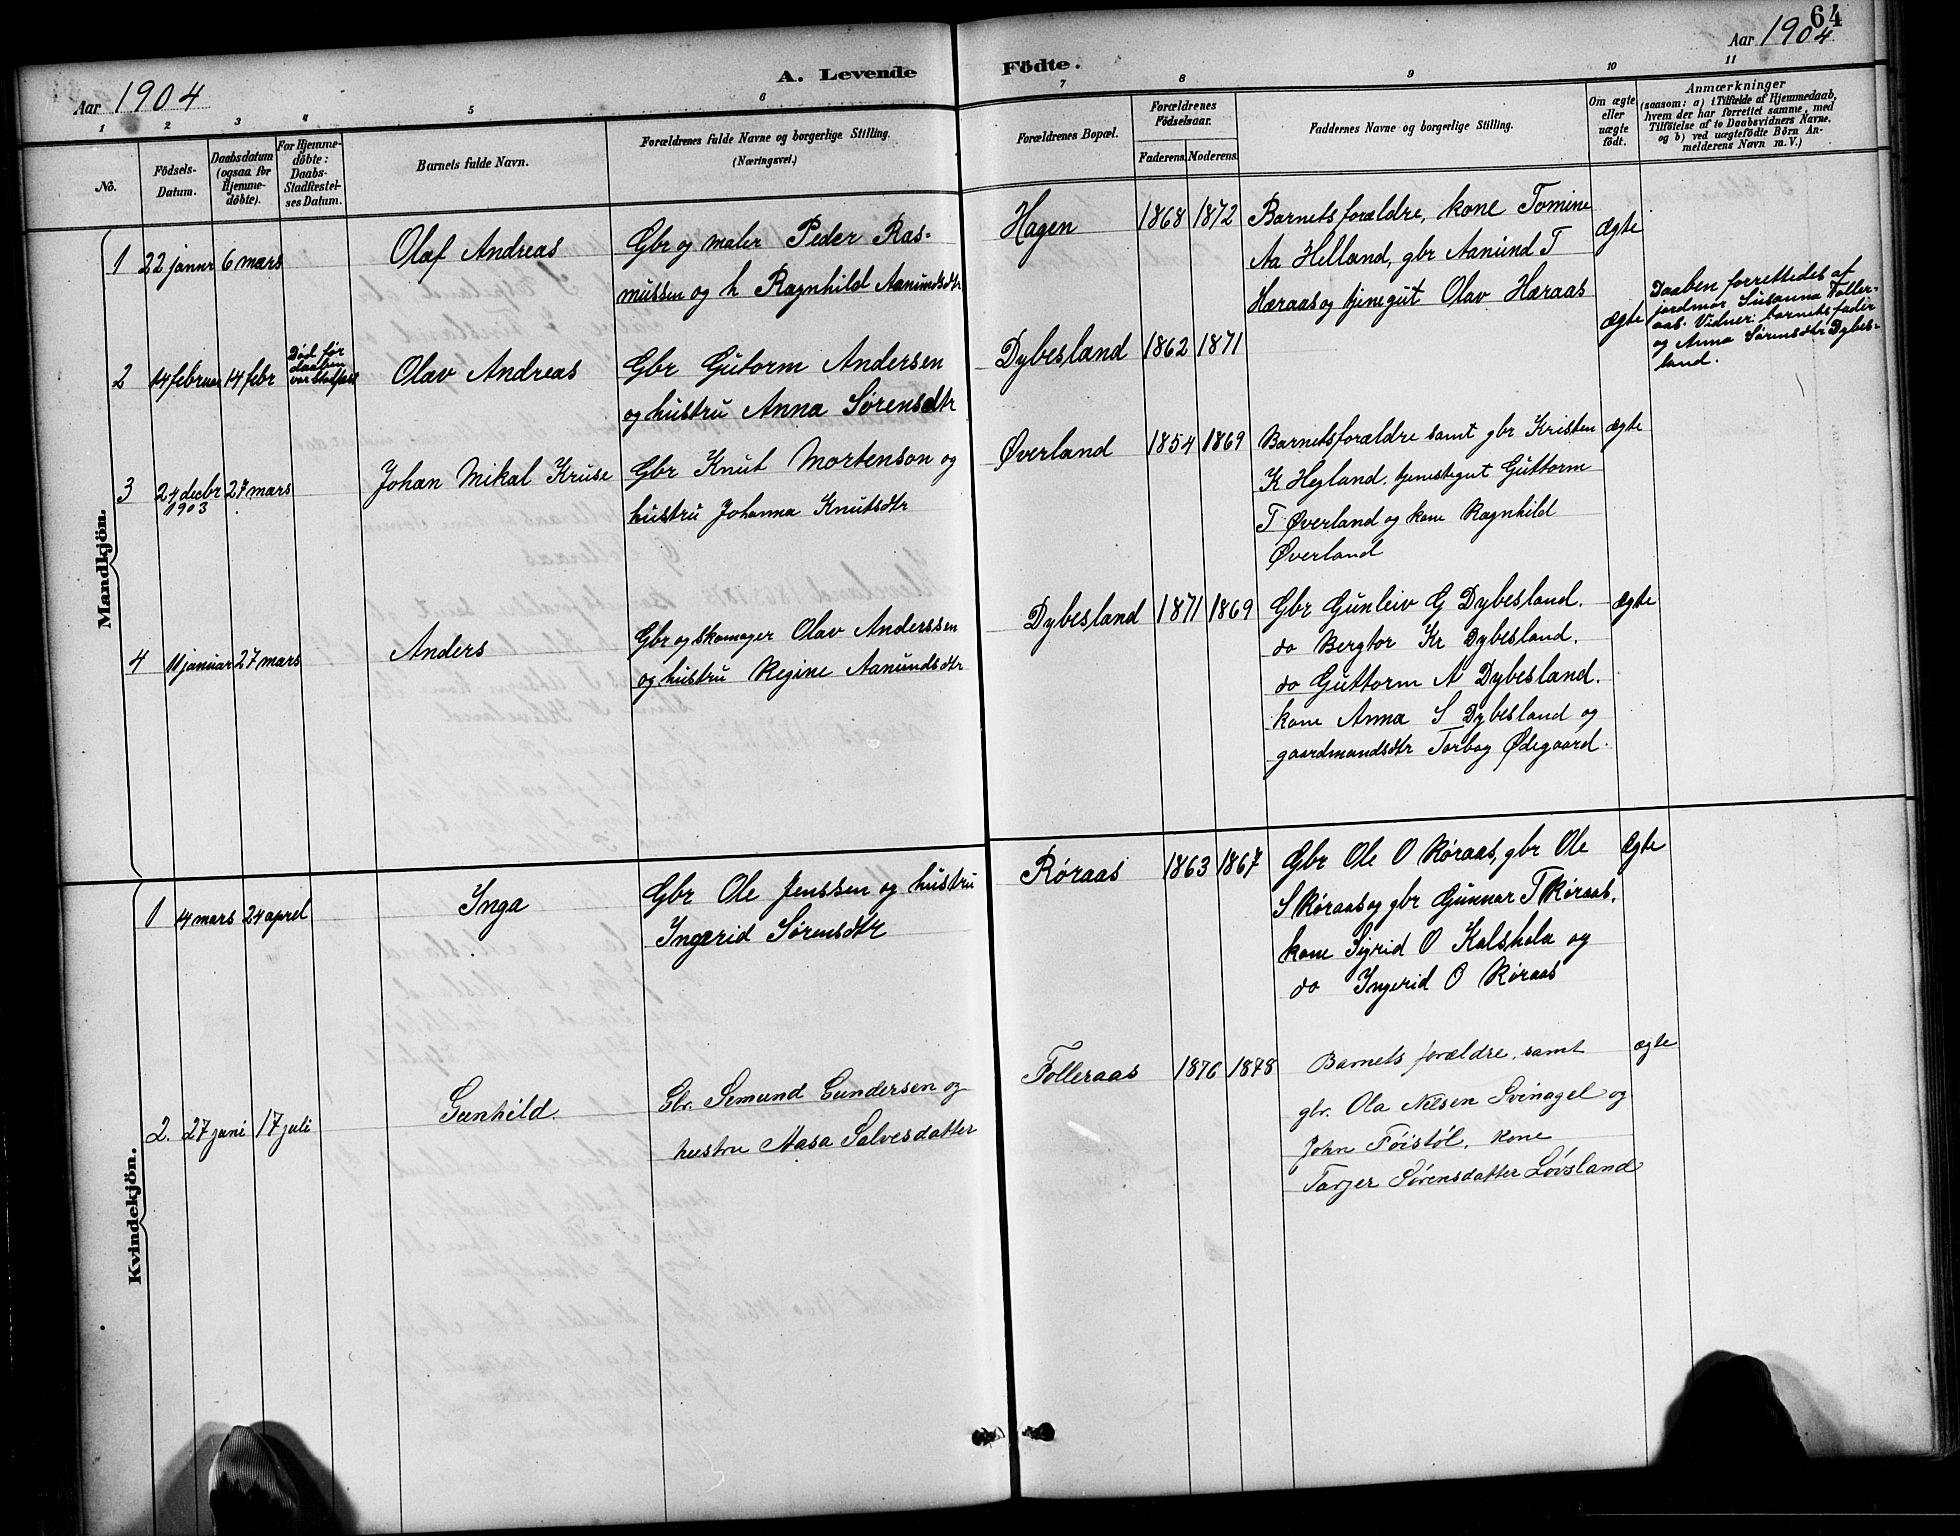 64
Aar 1904
A. Levende Födte.
Aar 1904
1 2 3 4 5 6 7 8 9 10 11
No.
Födsels-
Datum.
Daabsdatum
(ogsaa for
Hjemme-
döbte).
For Hjemme-
döbte:
Daabs-
Stadfæstel-
ses Datum.
Barnets fulde Navn.
Forældrenes fulde Navne og borgerlige Stilling.
(Næringsvei.)
Forældrenes Bopæl.
Forældrenes
Födselsaar.
Faderens. Moderens.
Faddernes Navne og borgerlige Stilling.
Om ægte
eller
uægte
födt.
Anmærkninger
(saasom: a) i Tilfælde af Hjemmedaab,
hvem der har forrettet samme, med
Tilföielse af to Daabsvidners Navne.
og b) ved uægtefödte Börn An-
melderens Navn m.V.)
Mandkjön.
1 22 januar 6 mars
Olaf Andreas
Gbr og maler Peder Ras-
mussen og h Ragnhild Aanundsdtr
Hagen 1868 1872
Barnets forældre, kone Tomine
Aa Helland, gbr Aanund T
Hæraas og tjenegut Olav Hæraas
ægte
2 14 februar 14 febr
Død før
daaben
var stadfæst
Olav Andreas
Gbr Gutorm Andersen
og hustru Anna Sørensdtr
Dybesland 1862 1871
ægte
Daaben forrettedes af
jordmor Susanna Foller-
aas. Vidner: barnets fader
og Anna Sørensdtr Dybes-
land.
3 24 decbr 27 mars
1903
Johan Mikal Kruse
Gbr Knut Mortenson og
hustru Johanna Knutsdtr
Øverland 1854 1869
Barnets forældre samt gbr Kristen
K Hegland, tjenestegut Guttorm
T Øverland og kone Ragnhild
Øverland
ægte
4 11 januar 27 mars
Anders
Gbr og skomager Olav Anderssen
og hustru Regine Aanundsdtr
Dybesland 1871 1869
Gbr Gunleiv G Dybesland.
do Bergtor Kr Dybesland.
do Guttorm A Dybesland.
kone Anna S Dybesland og
gaardmandsdtr Torbog Ødegaard.
ægte
Kvindekjön.
1 14 mars 24 aprel
Inga
Gbr Ole Jenssen og hustru
Ingerid Sørensdtr
Røraas 1863 1867
Gbr Ole O Røraas, gbr Ole
S Røraas og gbr Gunnar T Røraas,
kone Sigrid O Kalshola og
do Ingerid O Røraas
Ægte
2. 27 juni 17 juli
Gunhild.
Gbr. Semund Gundersen og
hustru Aasa Salvesdatter
Folleraas 1876 1878
Barnets forældre, samt
gbr. Ola Nilsen Svinagel og
John Föistöl, kone
Tarjer Sörensdatter Lövsland
ægte